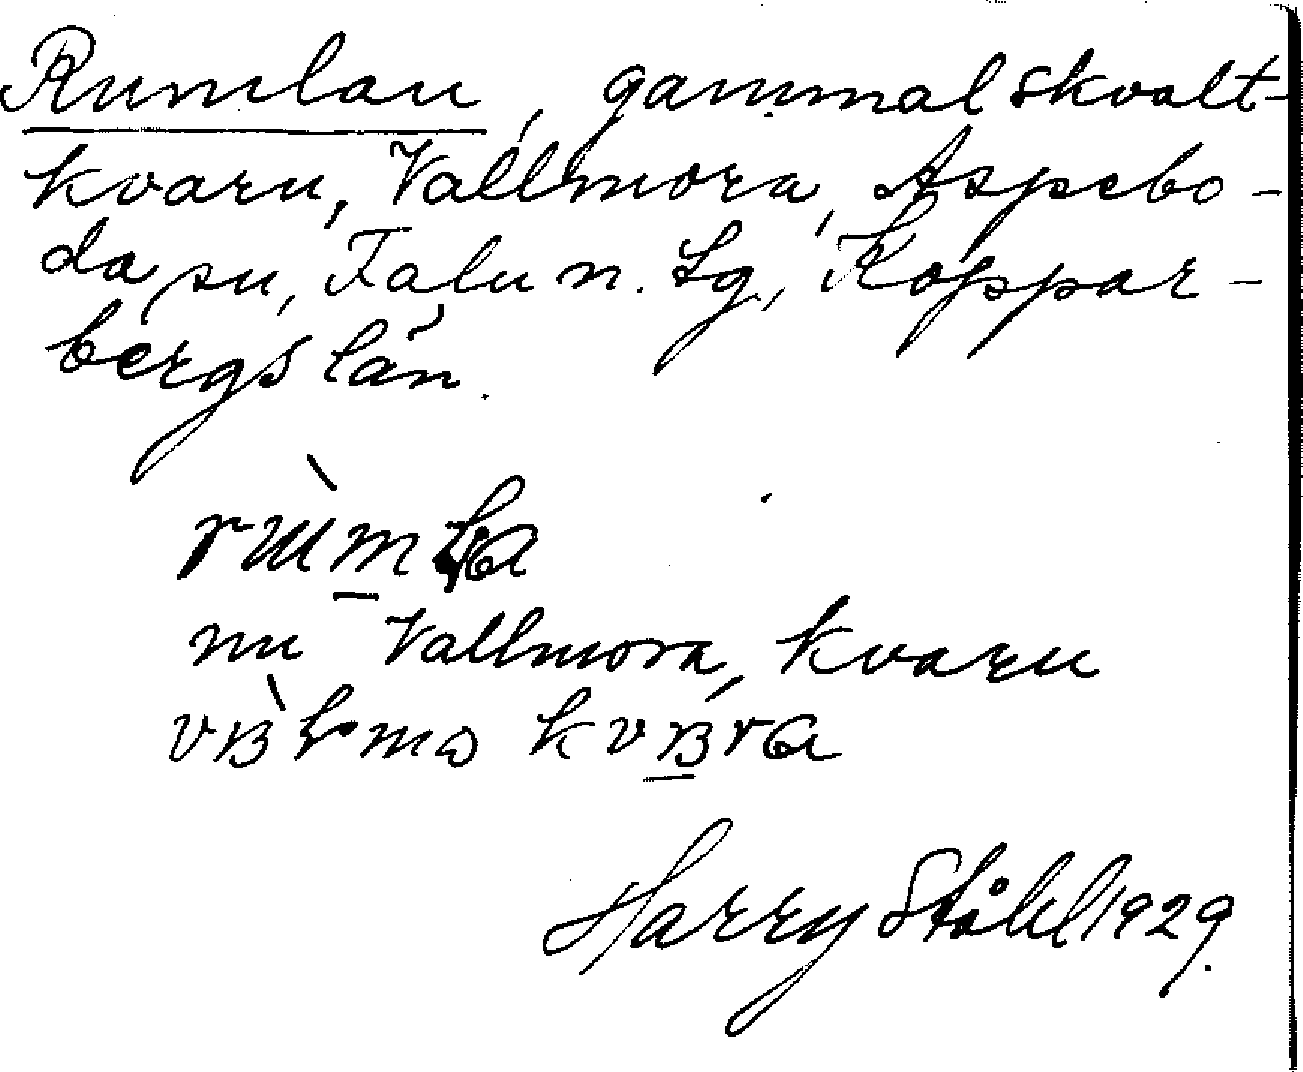 Rumlan, gammal skvalt-
kvarn, Vallmora, Aspebo-
da sn, Falu n. tg, Koppar-
bergs län.
nu Vallmora, kvarn
Harry Ståhl 1929.